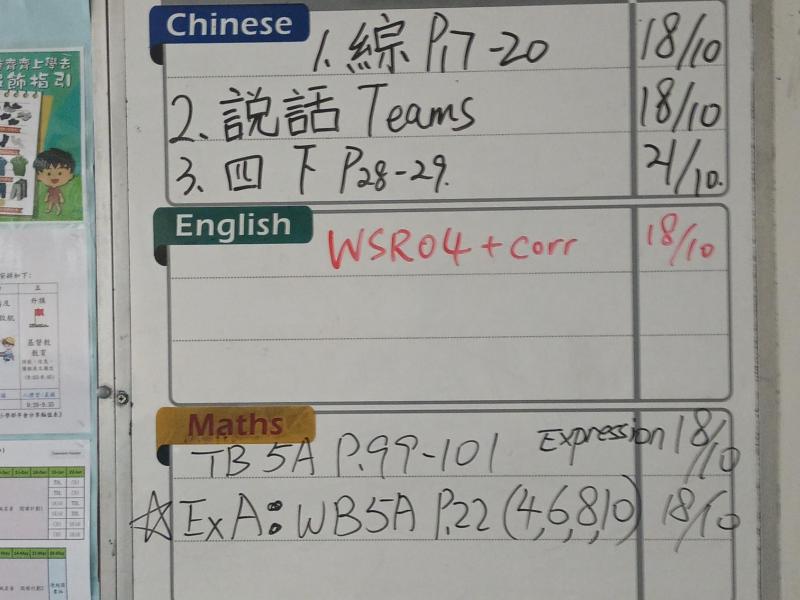 Chinese
1. 綜 P.17-20 18/10
2. 說話 Teams 18/10
3. 四下 P28-29. 21/10.
English
WSR04 + corr 18/10
Maths
TB 5A P.99-101 Expression 18/10
☆ Ex A: WB5A P.22 (4,6,8,10) 18/10
齊齊上學去
服飾指引
五
外操
基督教
教育